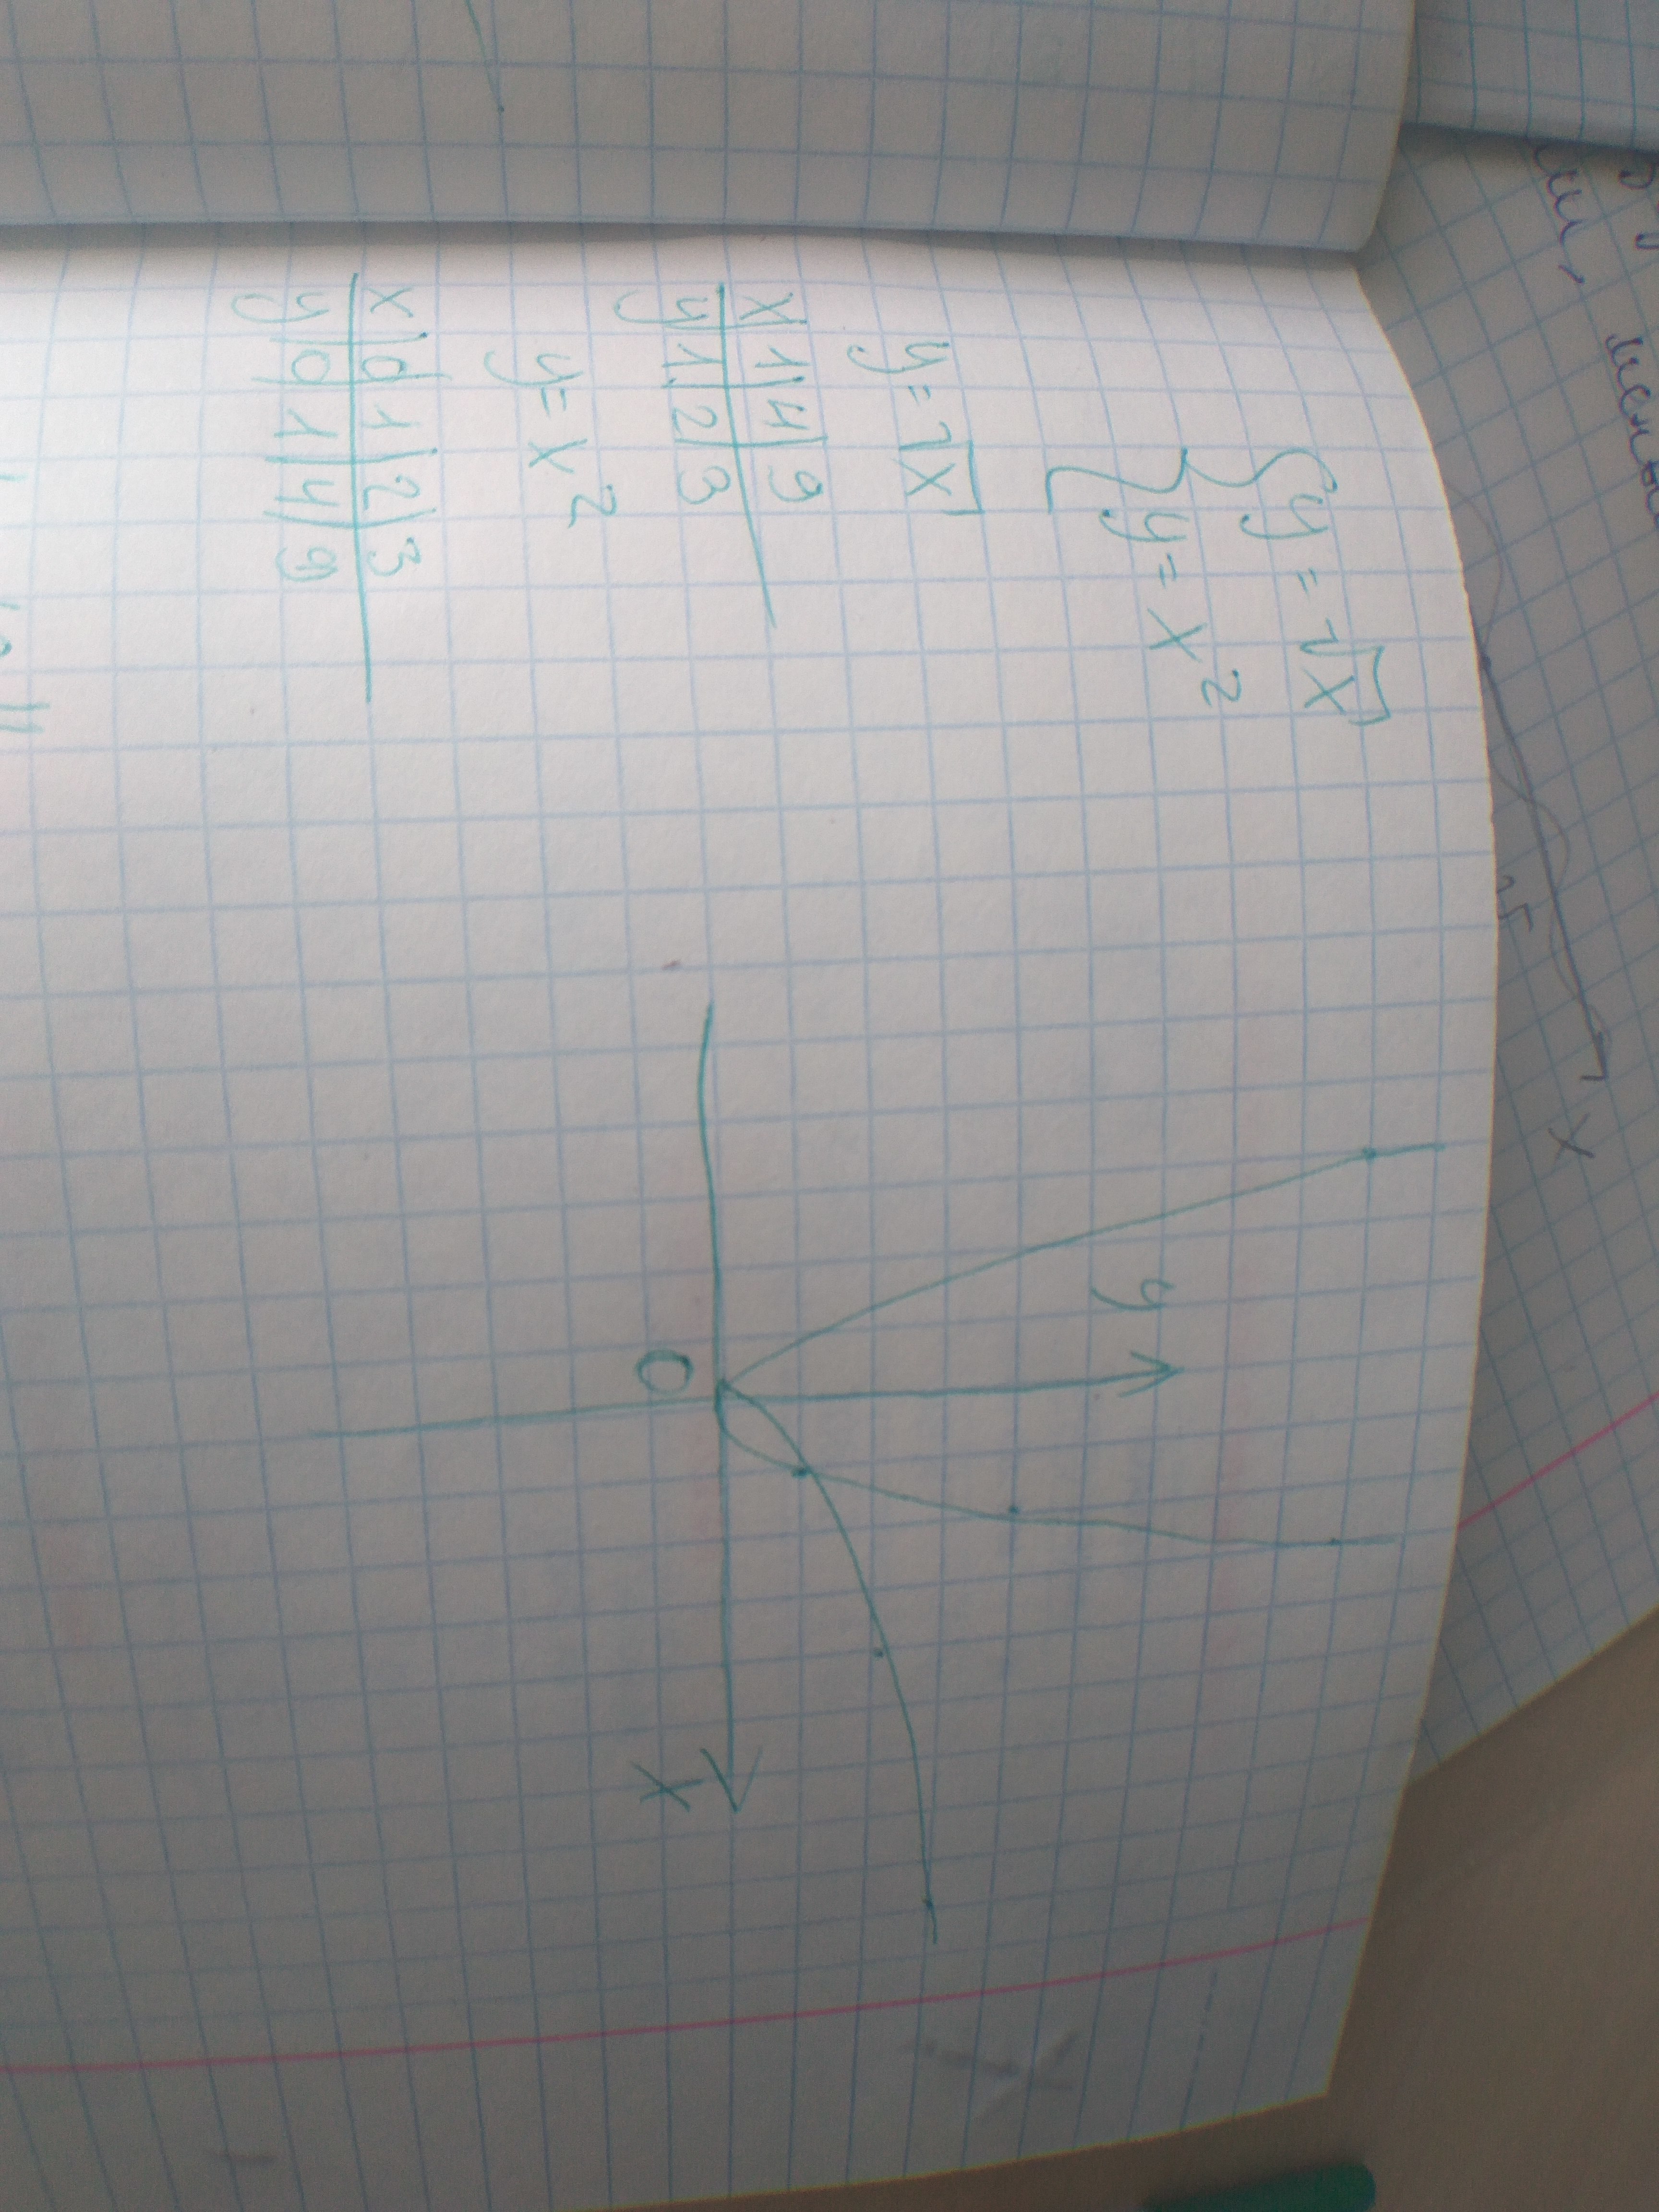 y = √x
y = x²
y = √x
x 1 4 9
y 1 2 3
y = x²
x 0 1 2 3
y 0 1 4 9
y
0
x
x